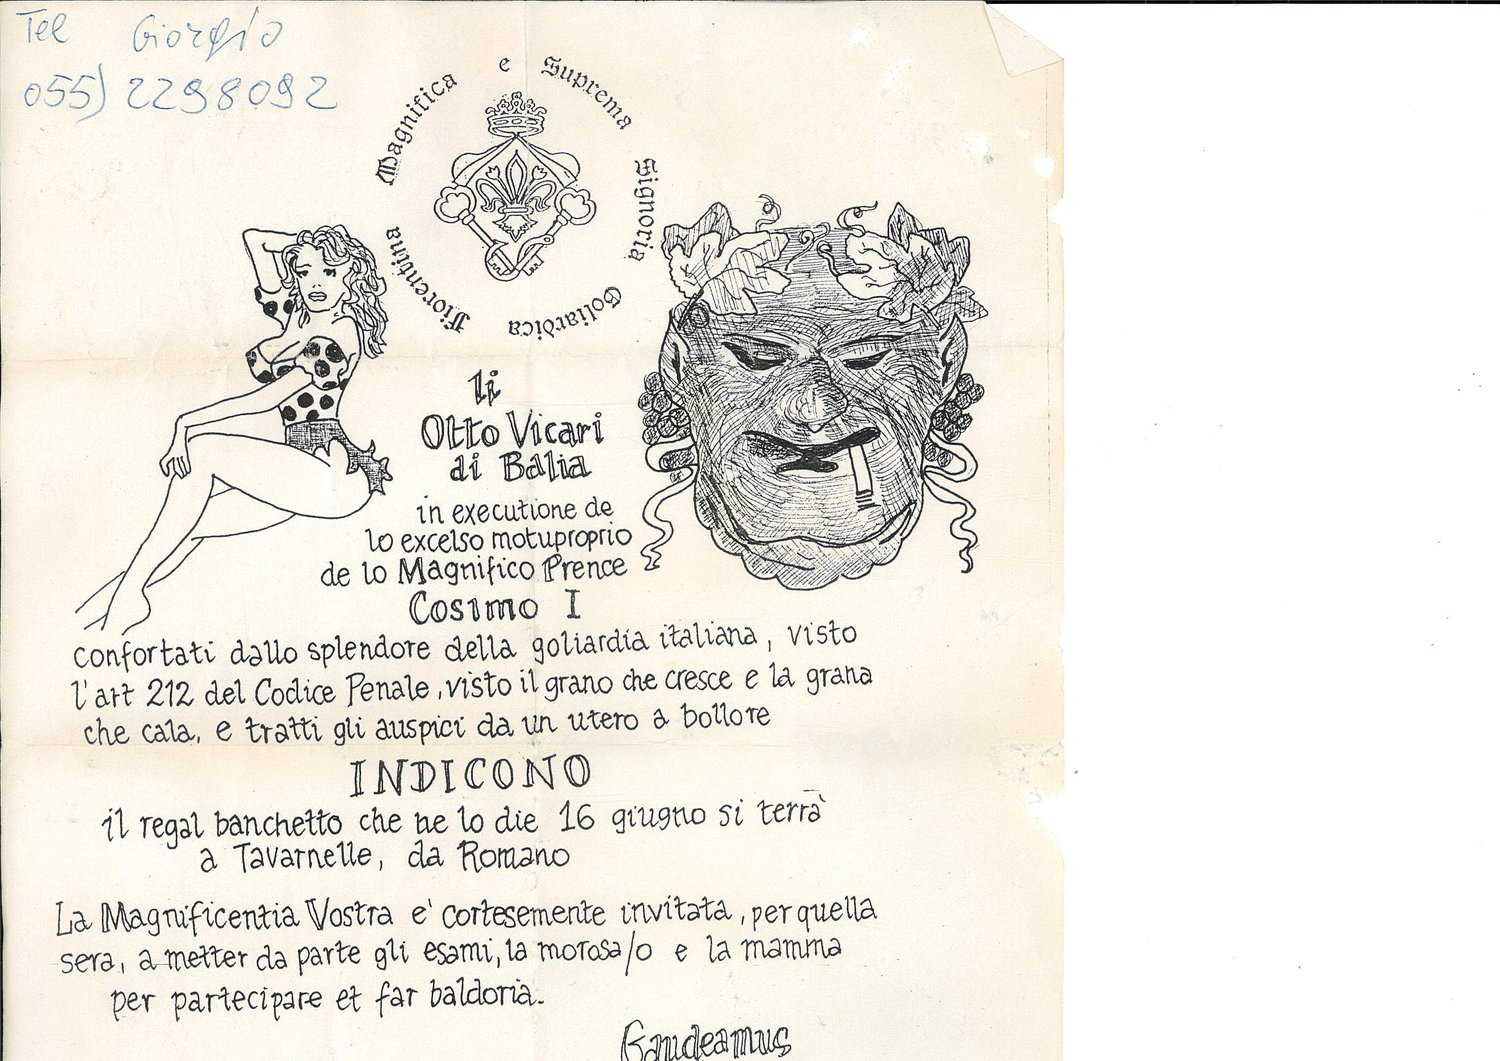 Tel Giorgio
055) 2298092
Magnifica e Suprema Signoria Goliardica Fiorentina
li
Otto Vicari
di Balia
in executione de
lo excelso motuproprio
de lo Magnifico Prence
Cosimo I
confortati dallo splendore della goliardia italiana, visto
l'art 212 del Codice Penale, visto il grano che cresce e la grana
che cala, e tratti gli auspici da un utero a bollore
INDICONO
il regal banchetto che ne lo die 16 giugno si terrà
a Tavarnelle, da Romano
La Magnificentia Vostra e' cortesemente invitata, per quella
sera, a metter da parte gli esami, la morosa/o e la mamma
per partecipare et far baldoria.
Gaudeamus